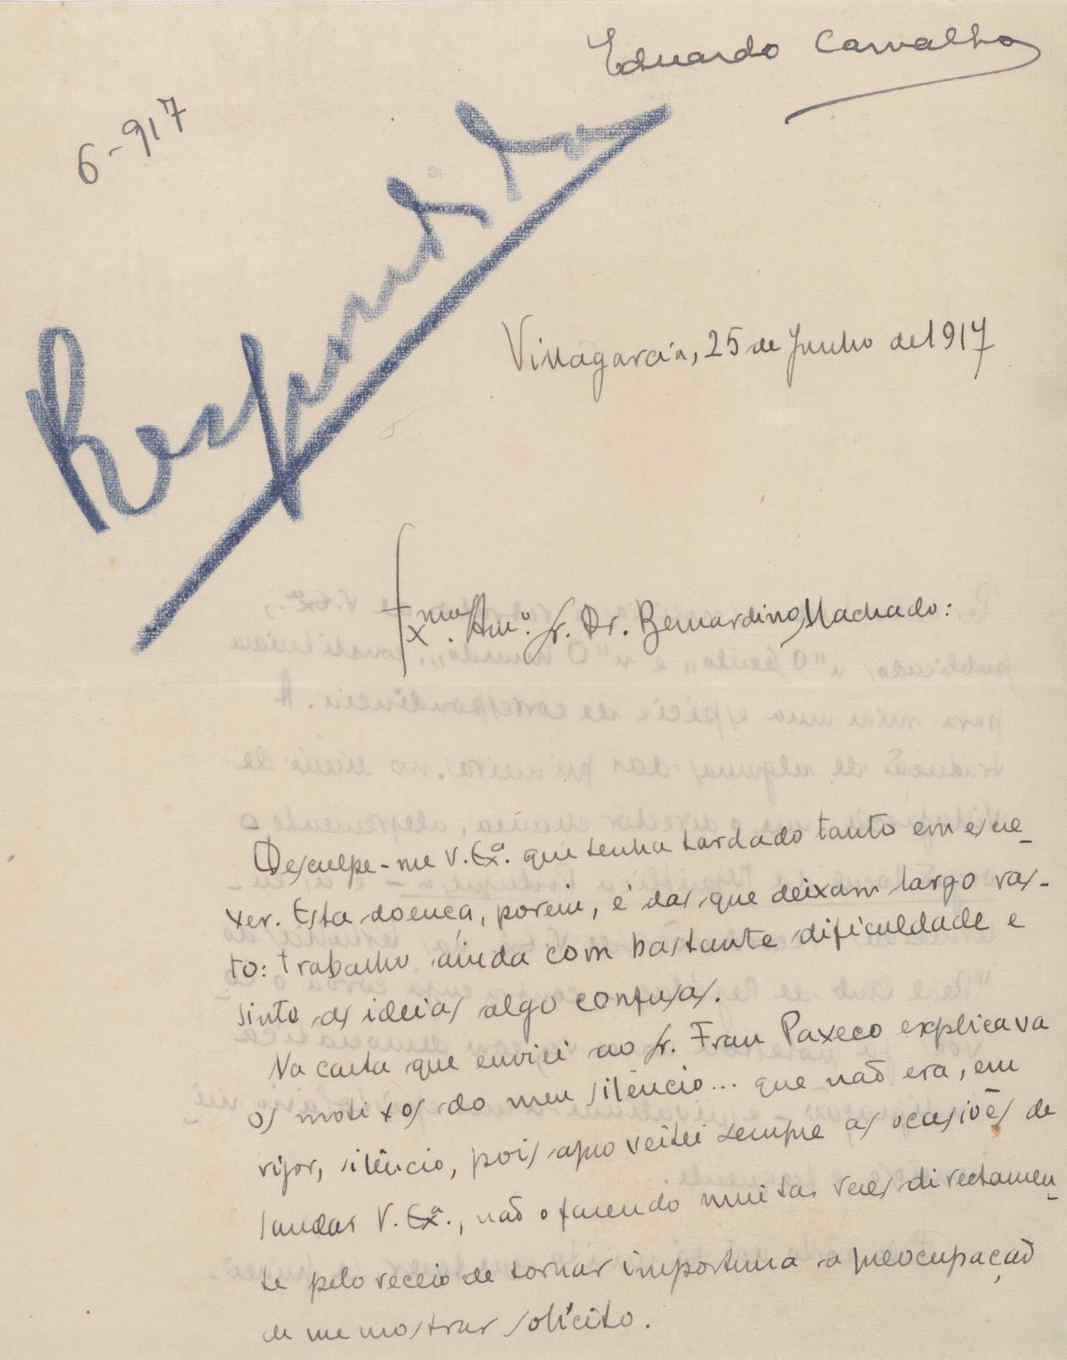 Eduardo Carvalho
6-917
Respondida
Villagarcía, 25 de Junho de 1917
Exmo. Amo. Sr. Dr. Bernardino Machado:
Desculpe-me V. Exa. que tenha tardado tanto em escre-
ver. Esta doença, porém, é das que deixam largo ras-
to: trabalho ainda com bastante dificuldade e
sinto as ideias algo confusas.
Na carta que enviei ao Sr. Fran Paxeco explicava
os motivos do meu silêncio... que não era, em
rigor, silêncio, pois aproveitei sempre as ocasiões de
saudar V. Exa., não o fazendo muitas vezes directamen-
te pelo receio de tornar importuna a preocupação
de me mostrar solícito.